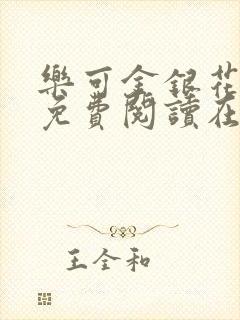 樂可金銀花
免費閱讀在
王全和